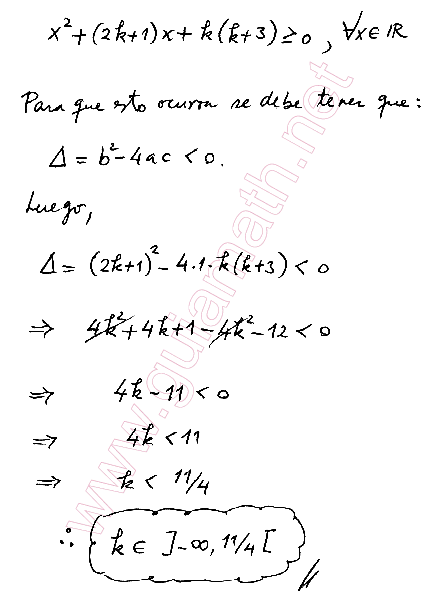 x²+(2k+1)x+k(k+3)≥0, ∀x∈ℝ
Para que esto ocurra se debe tener que:
Δ=b²-4ac<0.
Luego,
Δ=(2k+1)²-4·1·k(k+3)<0
⇒ 4k²+4k+1-4k²-12<0
⇒ 4k-11<0
⇒ 4k<11
⇒ k<11/4
∴ k∈]-∞,11/4[
www.guiamath.net